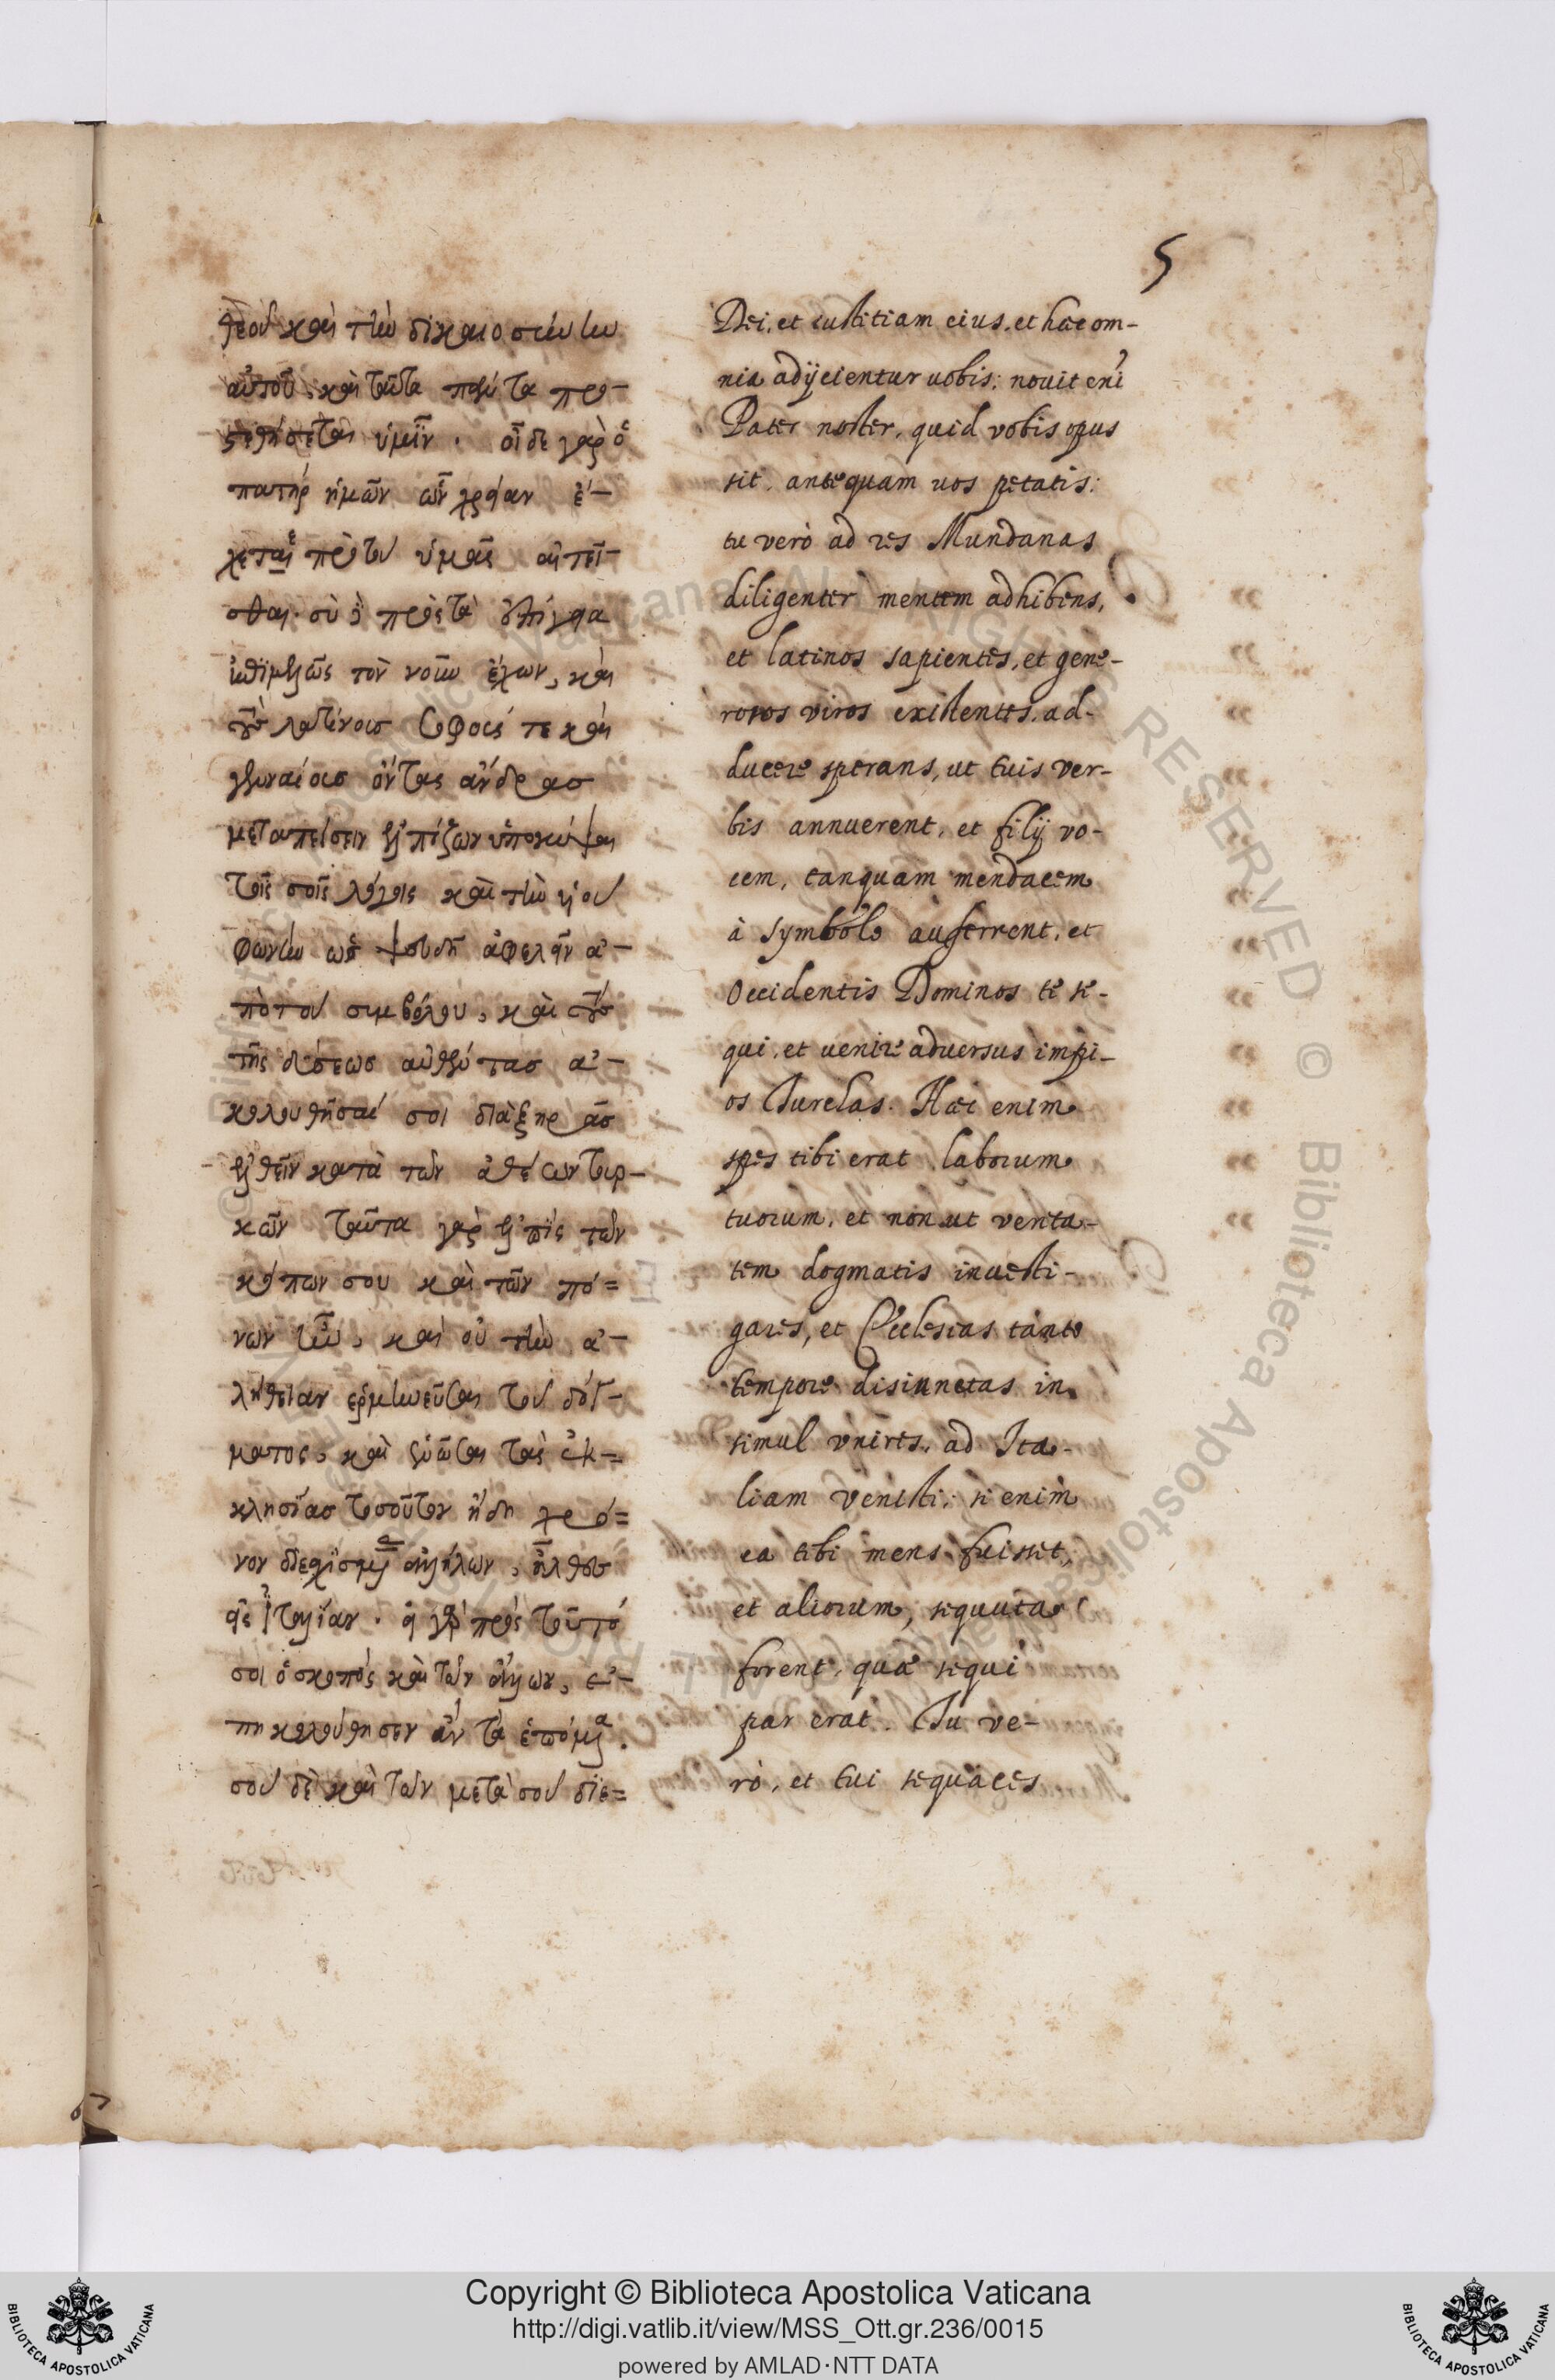 5
θεοῦ καὶ τὴν δικαιοσύνην
αὐτοῦ, καὶ ταῦτα πάντα προ-
στεθήσεται ὑμῖν. οἶδε γὰρ ὁ
πατὴρ ἡμῶν ὧν χρείαν ἔ-
χεται πρὸ τοῦ ὑμᾶς αἰτεῖ-
σθαι. σὺ δὲ πρὸς τὰ
τὸν νοῦν ἔχων, καὶ
τοὺς λατίνους σοφούς τε καὶ
γενναίους ὄντας ἄνδρας
μεταπείσειν ἐλπίζων ὑποκύψαι
τοῖς σοῖς λόγοις καὶ τὴν υἱοῦ
φωνὴν ὡς ψευδῆ ἀφελεῖν ἀ-
πὸ τοῦ συμβόλου, καὶ τοὺς
τῆς δύσεως αὐθέντας ἀ-
κολουθῆσαί σοι
ἐλθεῖν κατὰ τῶν ἀθέων τουρ-
κῶν ταῦτα γὰρ ἐλπὶς τῶν
κόπων σου καὶ τῶν πό=
νων ἦν, καὶ οὐ τὴν ἀ-
λήθειαν ἑρμηνεῦσαι τοῦ δόγ-
ματος, καὶ ἑνῶσαι τὰς ἐκ=
κλησίας τοσοῦτον ἤδη χρό=
νον διεσχισμένας ἀλλήλων, ἦλθες
εἰς ἰταλίαν. εἰ γὰρ πρὸς τοῦτό
σοι ὁ σκοπὸς καὶ τῶν ἄλλων, ἐ-
πηκολούθησεν ἂν τὰ ἑπόμενα.
σοῦ δὲ καὶ τῶν μετὰ σοῦ διε=
Dei, et iustitiam eius, et haec om-
nia adijcientur uobis; nouit eni
Pater noster, quid vobis opus
sit, antequam uos petatis:
tu verò ad res Mundanas
diligenter mentem adhibens,
et latinos sapientes, et gene-
rosos viros existentes, ad-
ducere sperans, ut tuis ver-
bis annuerent, et filij vo-
cem, tanquam mendacem
à symbolo auferrent, et
Occidentis Dominos te se-
qui, et uenire aduersus impi-
os Turchas. Haec enim
spes tibi erat laborum
tuorum, et non ut verita-
tem dogmatis inuesti-
gares, et Ecclesias tanto
tempore disiunctas in
simul vnires, ad Ita-
liam venisti; si enim
ea tibi mens fuisset,
et aliorum, sequuta
forent, quae sequi
par erat. Tu ve-
rò, et tui sequaces
Copyright © Biblioteca Apostolica Vaticana
http://digi.vatlib.it/view/MSS_Ott.gr.236/0015
powered by AMLAD·NTT DATA